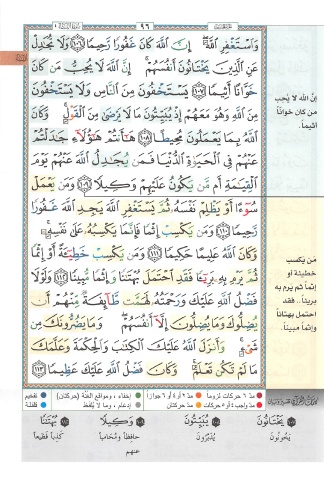 ٩٦
وَاسْتَغْفِرِ اللَّهَ إِنَّ اللَّهَ كَانَ غَفُورًا رَحِيمًا ١٠٦ وَلَا تُجَادِلْ
عَنِ الَّذِينَ يَخْتَانُونَ أَنْفُسَهُمْ إِنَّ اللَّهَ لَا يُحِبُّ مَنْ كَانَ
خَوَّانًا أَثِيمًا ١٠٧ يَسْتَخْفُونَ مِنَ النَّاسِ وَلَا يَسْتَخْفُونَ
مِنَ اللَّهِ وَهُوَ مَعَهُمْ إِذْ يُبَيِّتُونَ مَا لَا يَرْضَىٰ مِنَ الْقَوْلِ وَكَانَ
اللَّهُ بِمَا يَعْمَلُونَ مُحِيطًا ١٠٨ هَا أَنْتُمْ هَٰؤُلَاءِ جَادَلْتُمْ
عَنْهُمْ فِي الْحَيَاةِ الدُّنْيَا فَمَنْ يُجَادِلُ اللَّهَ عَنْهُمْ يَوْمَ
الْقِيَامَةِ أَمْ مَنْ يَكُونُ عَلَيْهِمْ وَكِيلًا ١٠٩ وَمَنْ يَعْمَلْ
سُوءًا أَوْ يَظْلِمْ نَفْسَهُ ثُمَّ يَسْتَغْفِرِ اللَّهَ يَجِدِ اللَّهَ غَفُورًا
رَحِيمًا ١١٠ وَمَنْ يَكْسِبْ إِثْمًا فَإِنَّمَا يَكْسِبُهُ عَلَىٰ نَفْسِهِ
وَكَانَ اللَّهُ عَلِيمًا حَكِيمًا ١١١ وَمَنْ يَكْسِبْ خَطِيئَةً أَوْ إِثْمًا
ثُمَّ يَرْمِ بِهِ بَرِيئًا فَقَدِ احْتَمَلَ بُهْتَانًا وَإِثْمًا مُبِينًا ١١٢ وَلَوْلَا
فَضْلُ اللَّهِ عَلَيْكَ وَرَحْمَتُهُ لَهَمَّتْ طَائِفَةٌ مِنْهُمْ أَنْ
يُضِلُّوكَ وَمَا يُضِلُّونَ إِلَّا أَنْفُسَهُمْ وَمَا يَضُرُّونَكَ مِنْ
شَيْءٍ وَأَنْزَلَ اللَّهُ عَلَيْكَ الْكِتَابَ وَالْحِكْمَةَ وَعَلَّمَكَ
مَا لَمْ تَكُنْ تَعْلَمُ وَكَانَ فَضْلُ اللَّهِ عَلَيْكَ عَظِيمًا ١١٣
إنّ الله لا يُحِب
من كان خوّاناً
أثيماً.
من يكسب
خطيئة أو
إثماً ثم يرم به
بريئاً. فقد
احتمل بهتاناً
وإثماً مبيناً.
مدّ ٦ حركات لزوماً مدّ ٢ أو ٤ أو ٦ جوازاً إخفاء، ومواقع الغُنّة (حركتان) تفخيم
مدّ واجب ٤ أو ٥ حركات مدّ حركتان إدغام، وما لا يُلفَظ قلقلة
يَخْتَانُونَ يُبَيِّتُونَ وَكِيلًا بُهْتَانًا
يَخُونُونَ يُدَبِّرُونَ حافظاً ومُحَامياً كذباً فظيعاً
عنهم